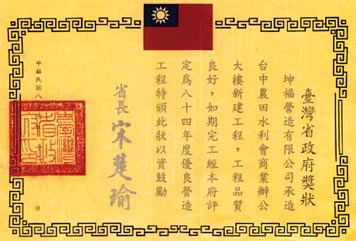 臺灣省政府獎狀
坤福營造有限公司承造
台中農田水利會商業辦公
大樓新建工程，工程品質
良好，如期完工經本府評
定為八十四年度優良營造
工程特頒此狀以資鼓勵
省長 宋楚瑜
中華民國八
日